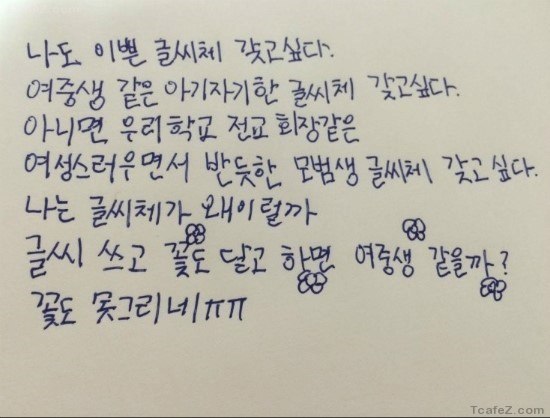 나도 이쁜 글씨체 갖고싶다.
여중생 같은 아기자기한 글씨체 갖고싶다.
아니면 우리학교 전교 회장같은
여성스러우면서 반듯한 모범생 글씨체 갖고싶다.
나는 글씨체가 왜이럴까
글씨 쓰고 꽃도 달고 하면 여중생 같을까?
꽃도 못그리네ㅠㅠ
TcafeZ.com